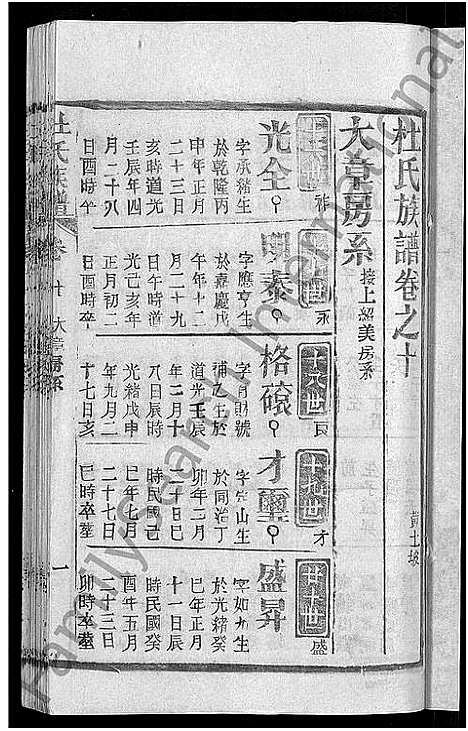 杜氏族譜卷之十
大章房系
接上紹美房系
光全
字承緒生
於乾隆丙
申年正月
二十三日
亥時道光
壬辰年四
月二十八
日酉時卒
十七世
永
明泰
字應亨生
於嘉慶戊
午年十二
月二十九
日午時道
光己亥年
正月初二
日酉時卒
十八世
良
格磙
字言財號
補乙生於
道光壬辰
年二月十
八日辰時
光緒戊申
年九月二
十七日亥
十九世
才
才璽
字定山生
於同治丁
卯年二月
二十日巳
時民國己
巳年七月
二十七日
巳時卒葬
盛
盛昇
字如九生
於光緒癸
巳年正月
十一日辰
時民國癸
酉年五月
二十三日
卯時卒葬
杜氏族譜
卷十
大章房系
一
FamilySearch International